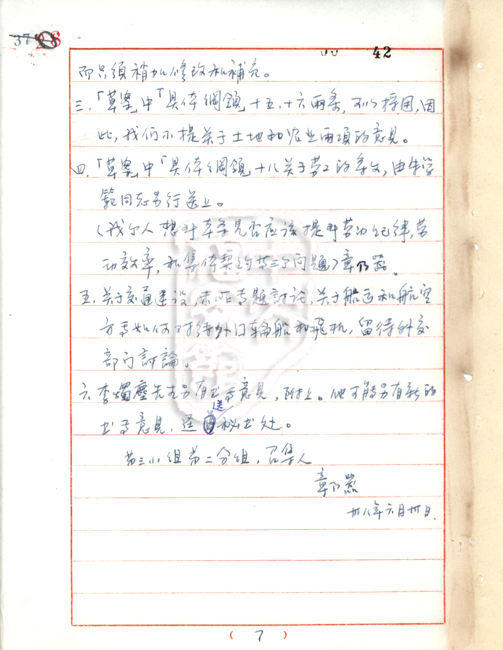 37 28
42
而只須稍加修改和補充。
三.「草案中「具体綱領十五、十六兩条,可以採用,因
此,我们不提关于土地和农业兩項的意見。
四.「草案中「具体綱領十八关于劳工的条文,由朱学
範同志另行送上。
(我个人想对草案是否应该提到劳动纪律,劳
动效率,和集体契约等三个问题)章乃器。
五.关于交通建设,未作专题討论,关于船运和航空
方面如何对待外口轮船和飛机,留待外交
部门討論。
六.李燭塵先生另有书面意見,附上。他可能另有新的
书面意見,逕送秘书处。
第三小组第二分组,召集人
章乃器
卅八年六月卅日
( 7 )